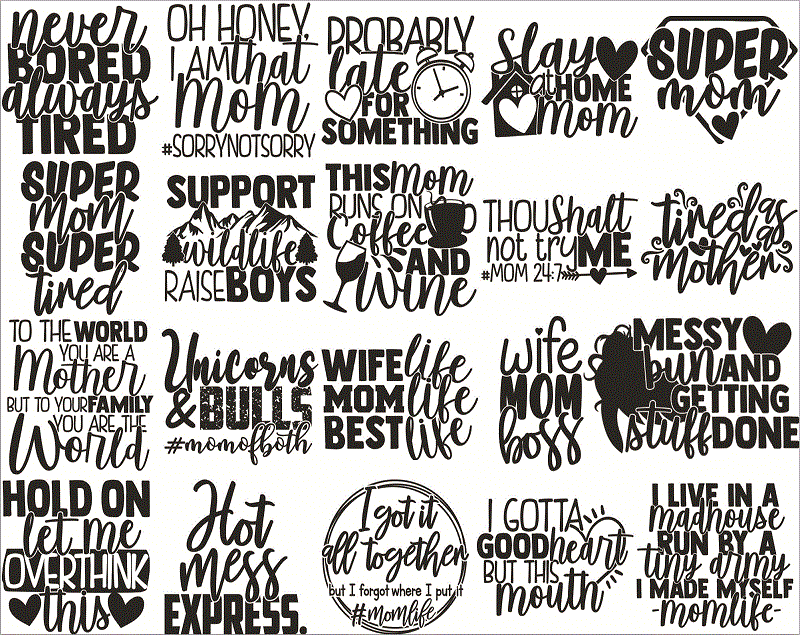 never
BORED
always
TIRED
OH HONEY,
I AM that
Mom
#SORRYNOTSORRY
PROBABLY
late
FOR
SOMETHING
Slay
at HOME
mom
SUPER
mom
SUPER
mom
SUPER
tired
SUPPORT
wildlife
RAISE BOYS
THIS Mom
RUNS ON
Coffee
AND
Wine
THOU Shalt
not try ME
#MOM 24:7
tired as
a
mother
TO THE WORLD
YOU ARE A
Mother
BUT TO YOUR FAMILY
YOU ARE THE
World
Unicorns
& BULLS
#momofboth
WIFE life
MOM life
BEST life
wife
MOM
boss
MESSY
bun AND
GETTING
stuff DONE
HOLD ON
let me
OVERTHINK
this
Hot
mess
EXPRESS.
I got it
all together
but I forgot where I put it
#momlife
I GOTTA
GOOD heart
BUT THIS
mouth
I LIVE IN A
madhouse
RUN BY A
tiny army
I MADE MYSELF
-momlife-